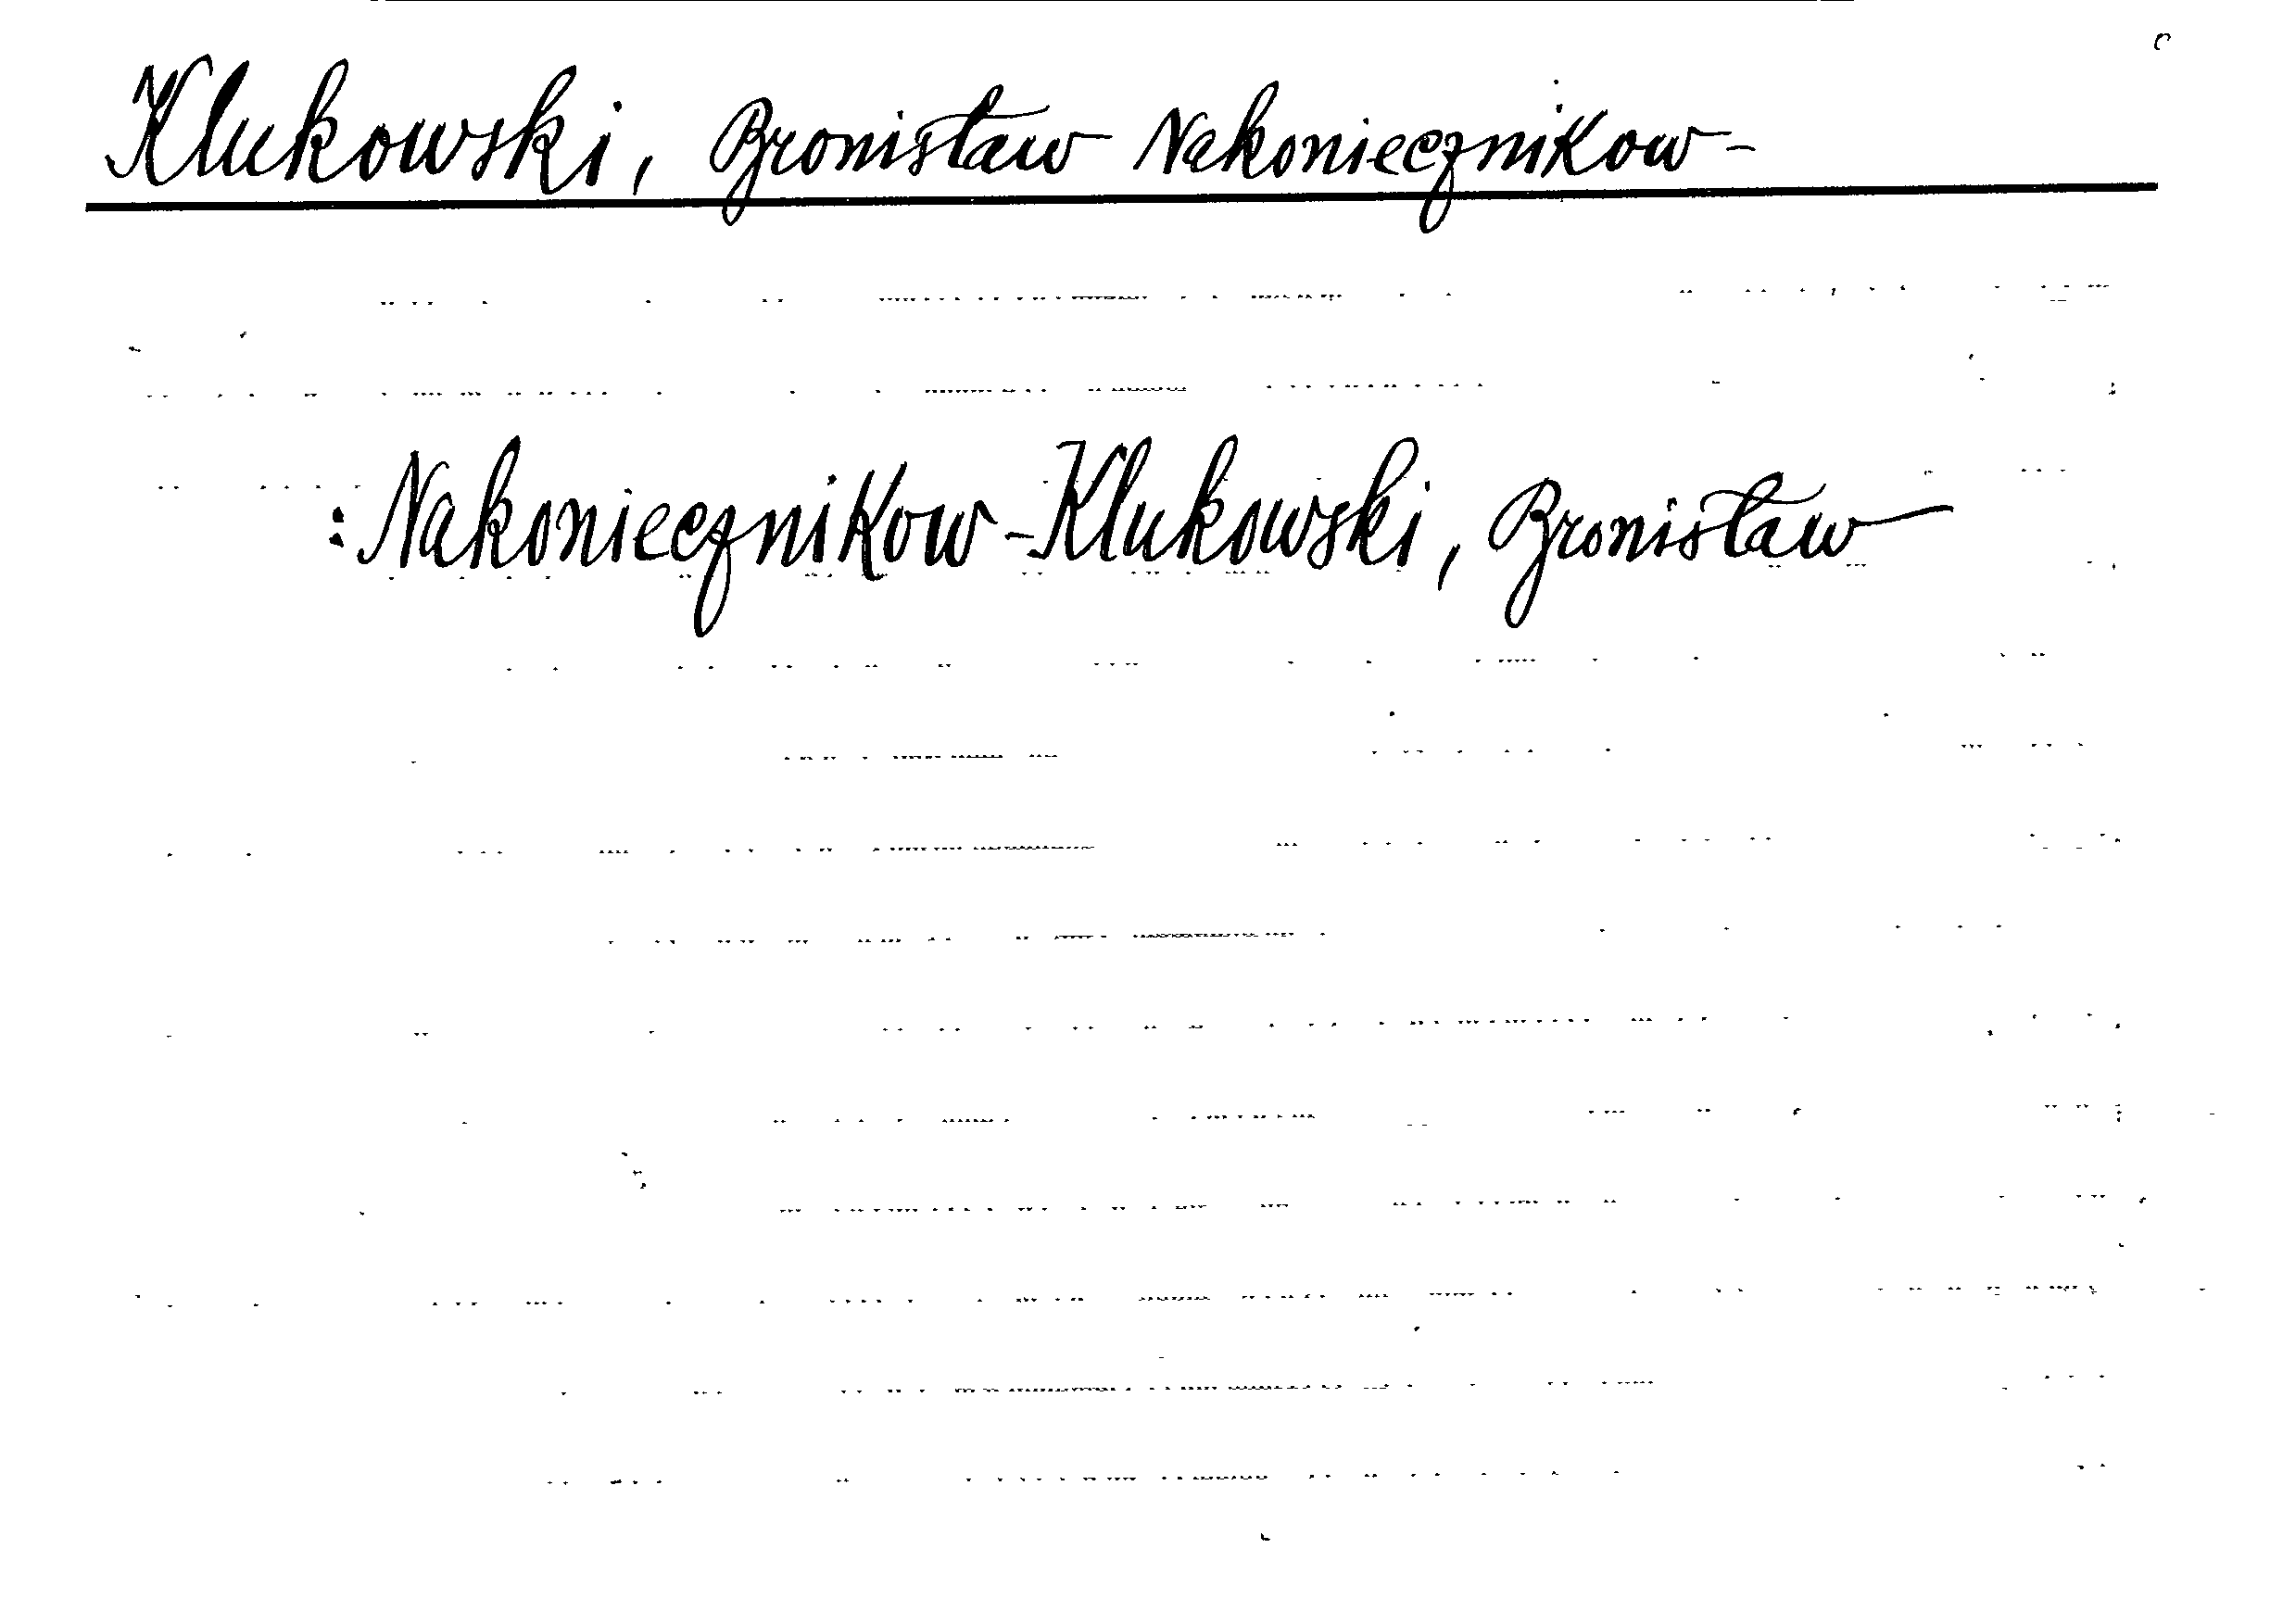 Klukowski, Bronisław Nakoniecznikow-
: Nakoniecznikow-Klukowski, Bronisław